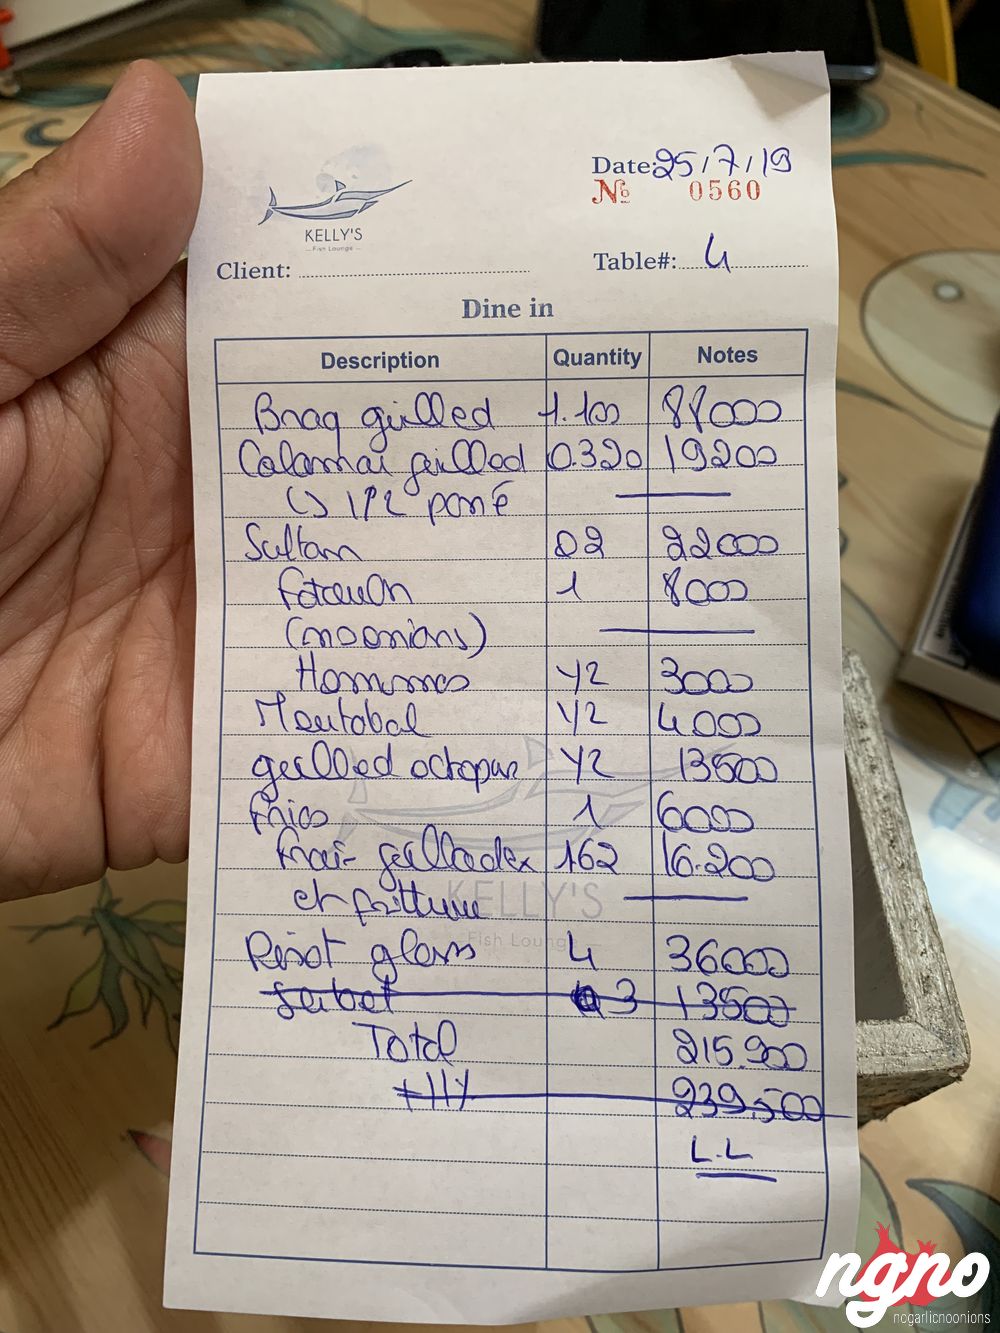 Date: 25/7/19
No 0560
KELLY'S
Fish Lounge
Client:
Table#: 4
Dine in
Description Quantity Notes
Braq grilled 1.100 88000
Calamai grilled 0.320 19200
1/2 pané
Sultan 02 22000
1 8000
(no onions)
Hommos 1/2 3000
Moutabal 1/2 4000
grilled octopus 1/2 13500
Fries 1 6000
162 16.200
et friture
KELLY'S
Fish Lounge
glass 4 36000
Sorbet 3 13500
Total 215.900
239.500
L.L
ngno
nogarlicnoonions